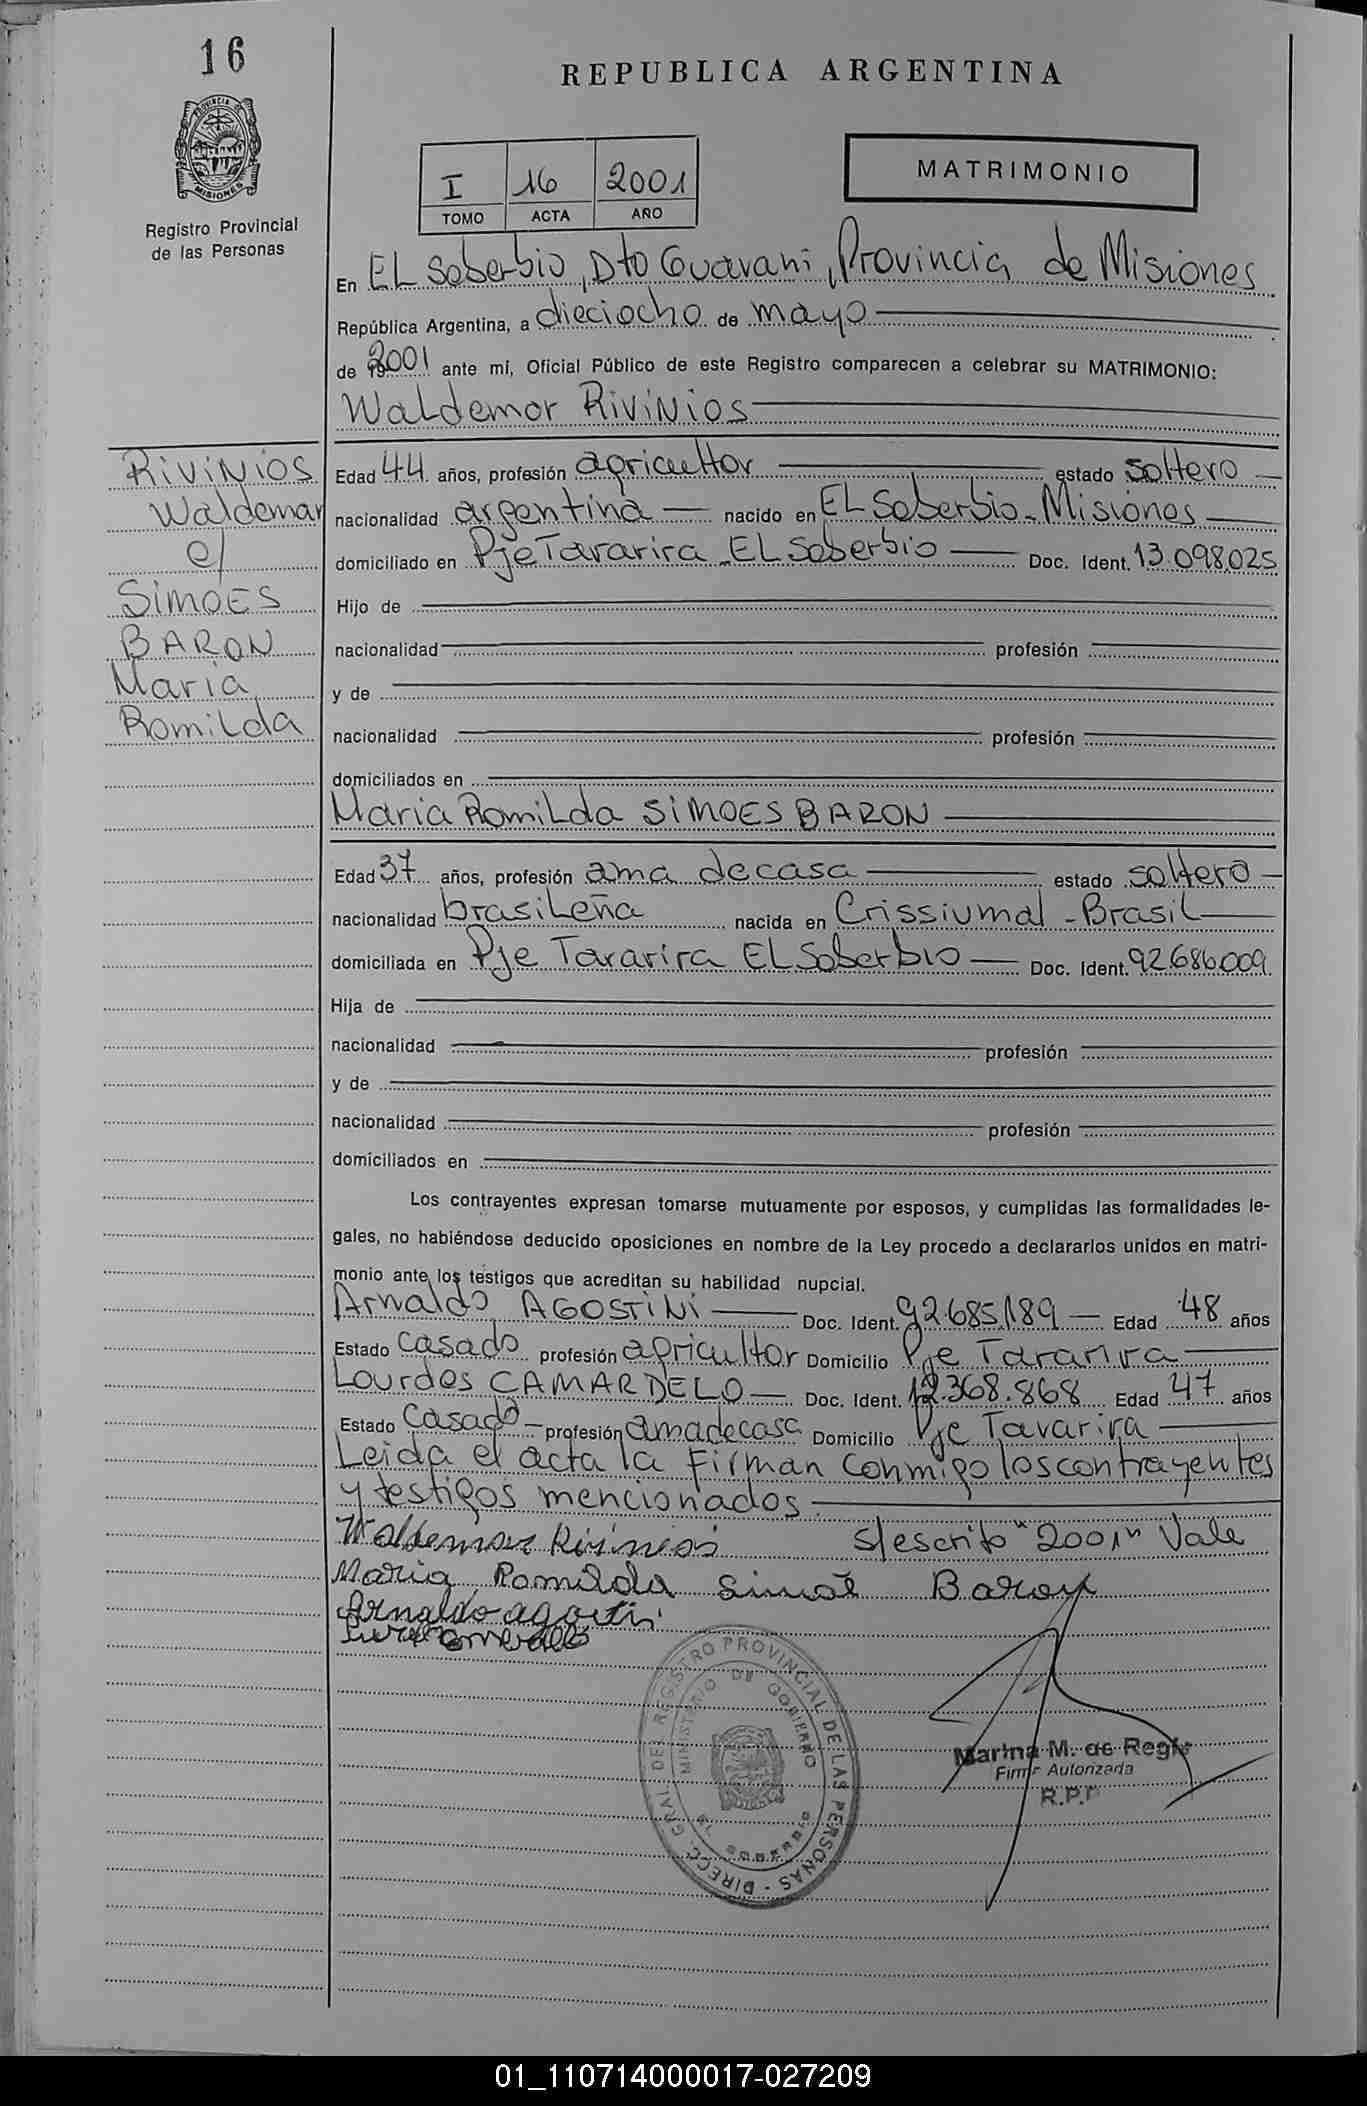 16
REPUBLICA ARGENTINA
PROVINCIA DE
MISIONES
Registro Provincial
de las Personas
I 16 2001
TOMO ACTA AÑO
MATRIMONIO
En EL Soberbio, Dto Guarani, Provincia de Misiones
República Argentina, a dieciocho de mayo
de 2001 ante mí, Oficial Público de este Registro comparecen a celebrar su MATRIMONIO:
Waldemar RiviNios
RiviNios
Waldemar
c/
SimoES
BARON
Maria
Romilda
Edad 44 años, profesión agricultor estado soltero
nacionalidad argentina nacido en EL Soberbio - Misiones
domiciliado en Pje Tararira - EL Soberbio Doc. Ident. 13.098.025
Hijo de
nacionalidad profesión
y de
nacionalidad profesión
domiciliados en
Maria Romilda SiMOES BARON
Edad 37 años, profesión ama de casa estado soltera
nacionalidad brasileña nacida en Crissiumal - Brasil
domiciliada en Pje Tararira EL Soberbio Doc. Ident. 92.686.009
Hija de
nacionalidad profesión
y de
nacionalidad profesión
domiciliados en
Los contrayentes expresan tomarse mutuamente por esposos, y cumplidas las formalidades le-
gales, no habiéndose deducido oposiciones en nombre de la Ley procedo a declararlos unidos en matri-
monio ante los testigos que acreditan su habilidad nupcial.
Arnaldo AGOSTiNi Doc. Ident. 92.685.189 Edad 48 años
Estado Casado profesión agricultor Domicilio Pje Tararira
Lourdes CAMARDELO Doc. Ident. 12.368.868 Edad 47 años
Estado Casado profesión ama de casa Domicilio Pje Tararira
Leida el acta la Firman conmigo los contrayentes
y testigos mencionados
Waldemar Rivinios s/escrito "2001" Vale
Maria Romilda Simoẽ Baron
Arnaldo agostini
DIRECC. GRAL. DEL REGISTRO PROVINCIAL DE LAS PERSONAS -
MINISTERIO DE GOBIERNO
EL SOBERBIO
Marina M. de Regis
Firma Autorizada
R.P.P
01_110714000017-027209